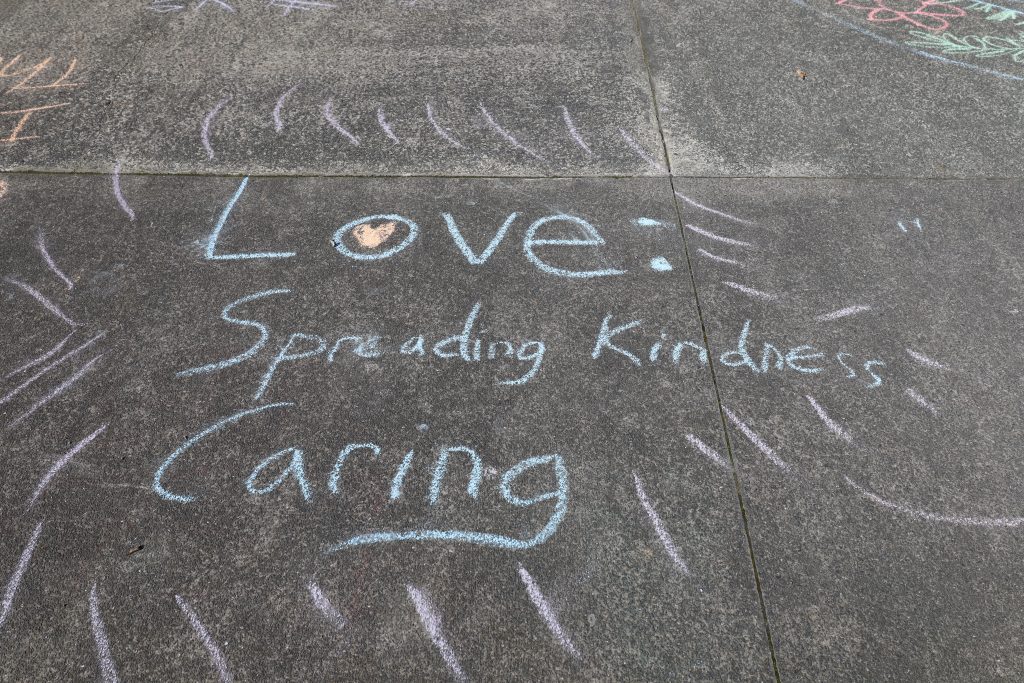 Love:
Spreading Kindness
Caring